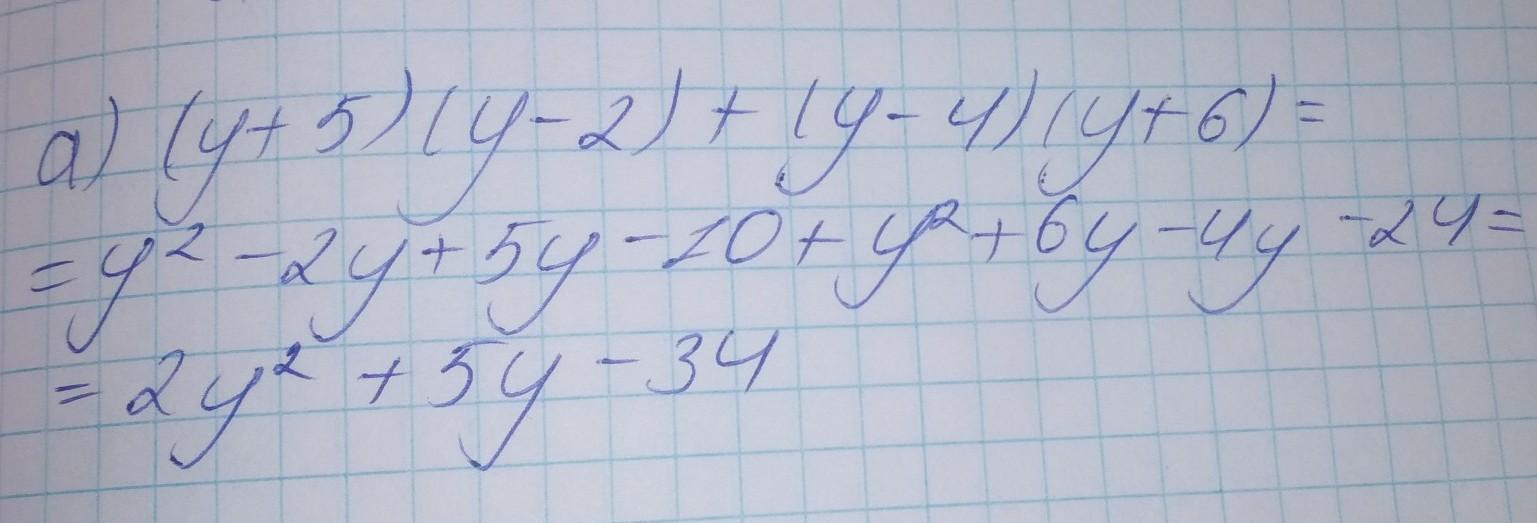 а) (y+5)(y-2)+(y-4)(y+6)=
=y²-2y+5y-10+y²+6y-4y-24=
=2y²+5y-34